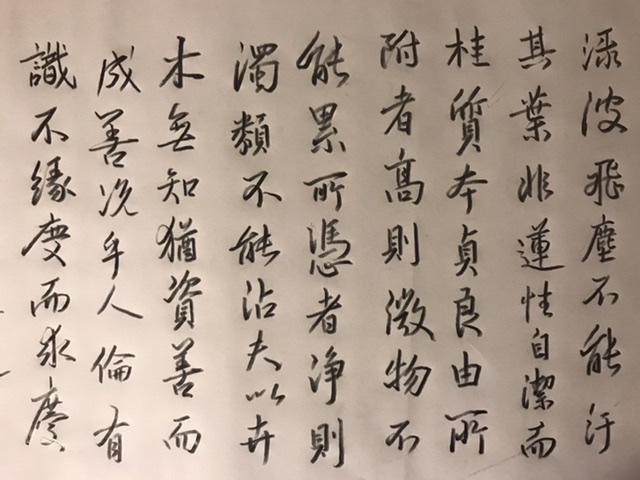 渌波飛塵不能汙
其葉非蓮性自潔而
桂質本貞良由所
附者高則微物不
能累所憑者净則
濁類不能沾夫以卉
木無知猶資善而
成善況乎人倫有
識不緣慶而求慶